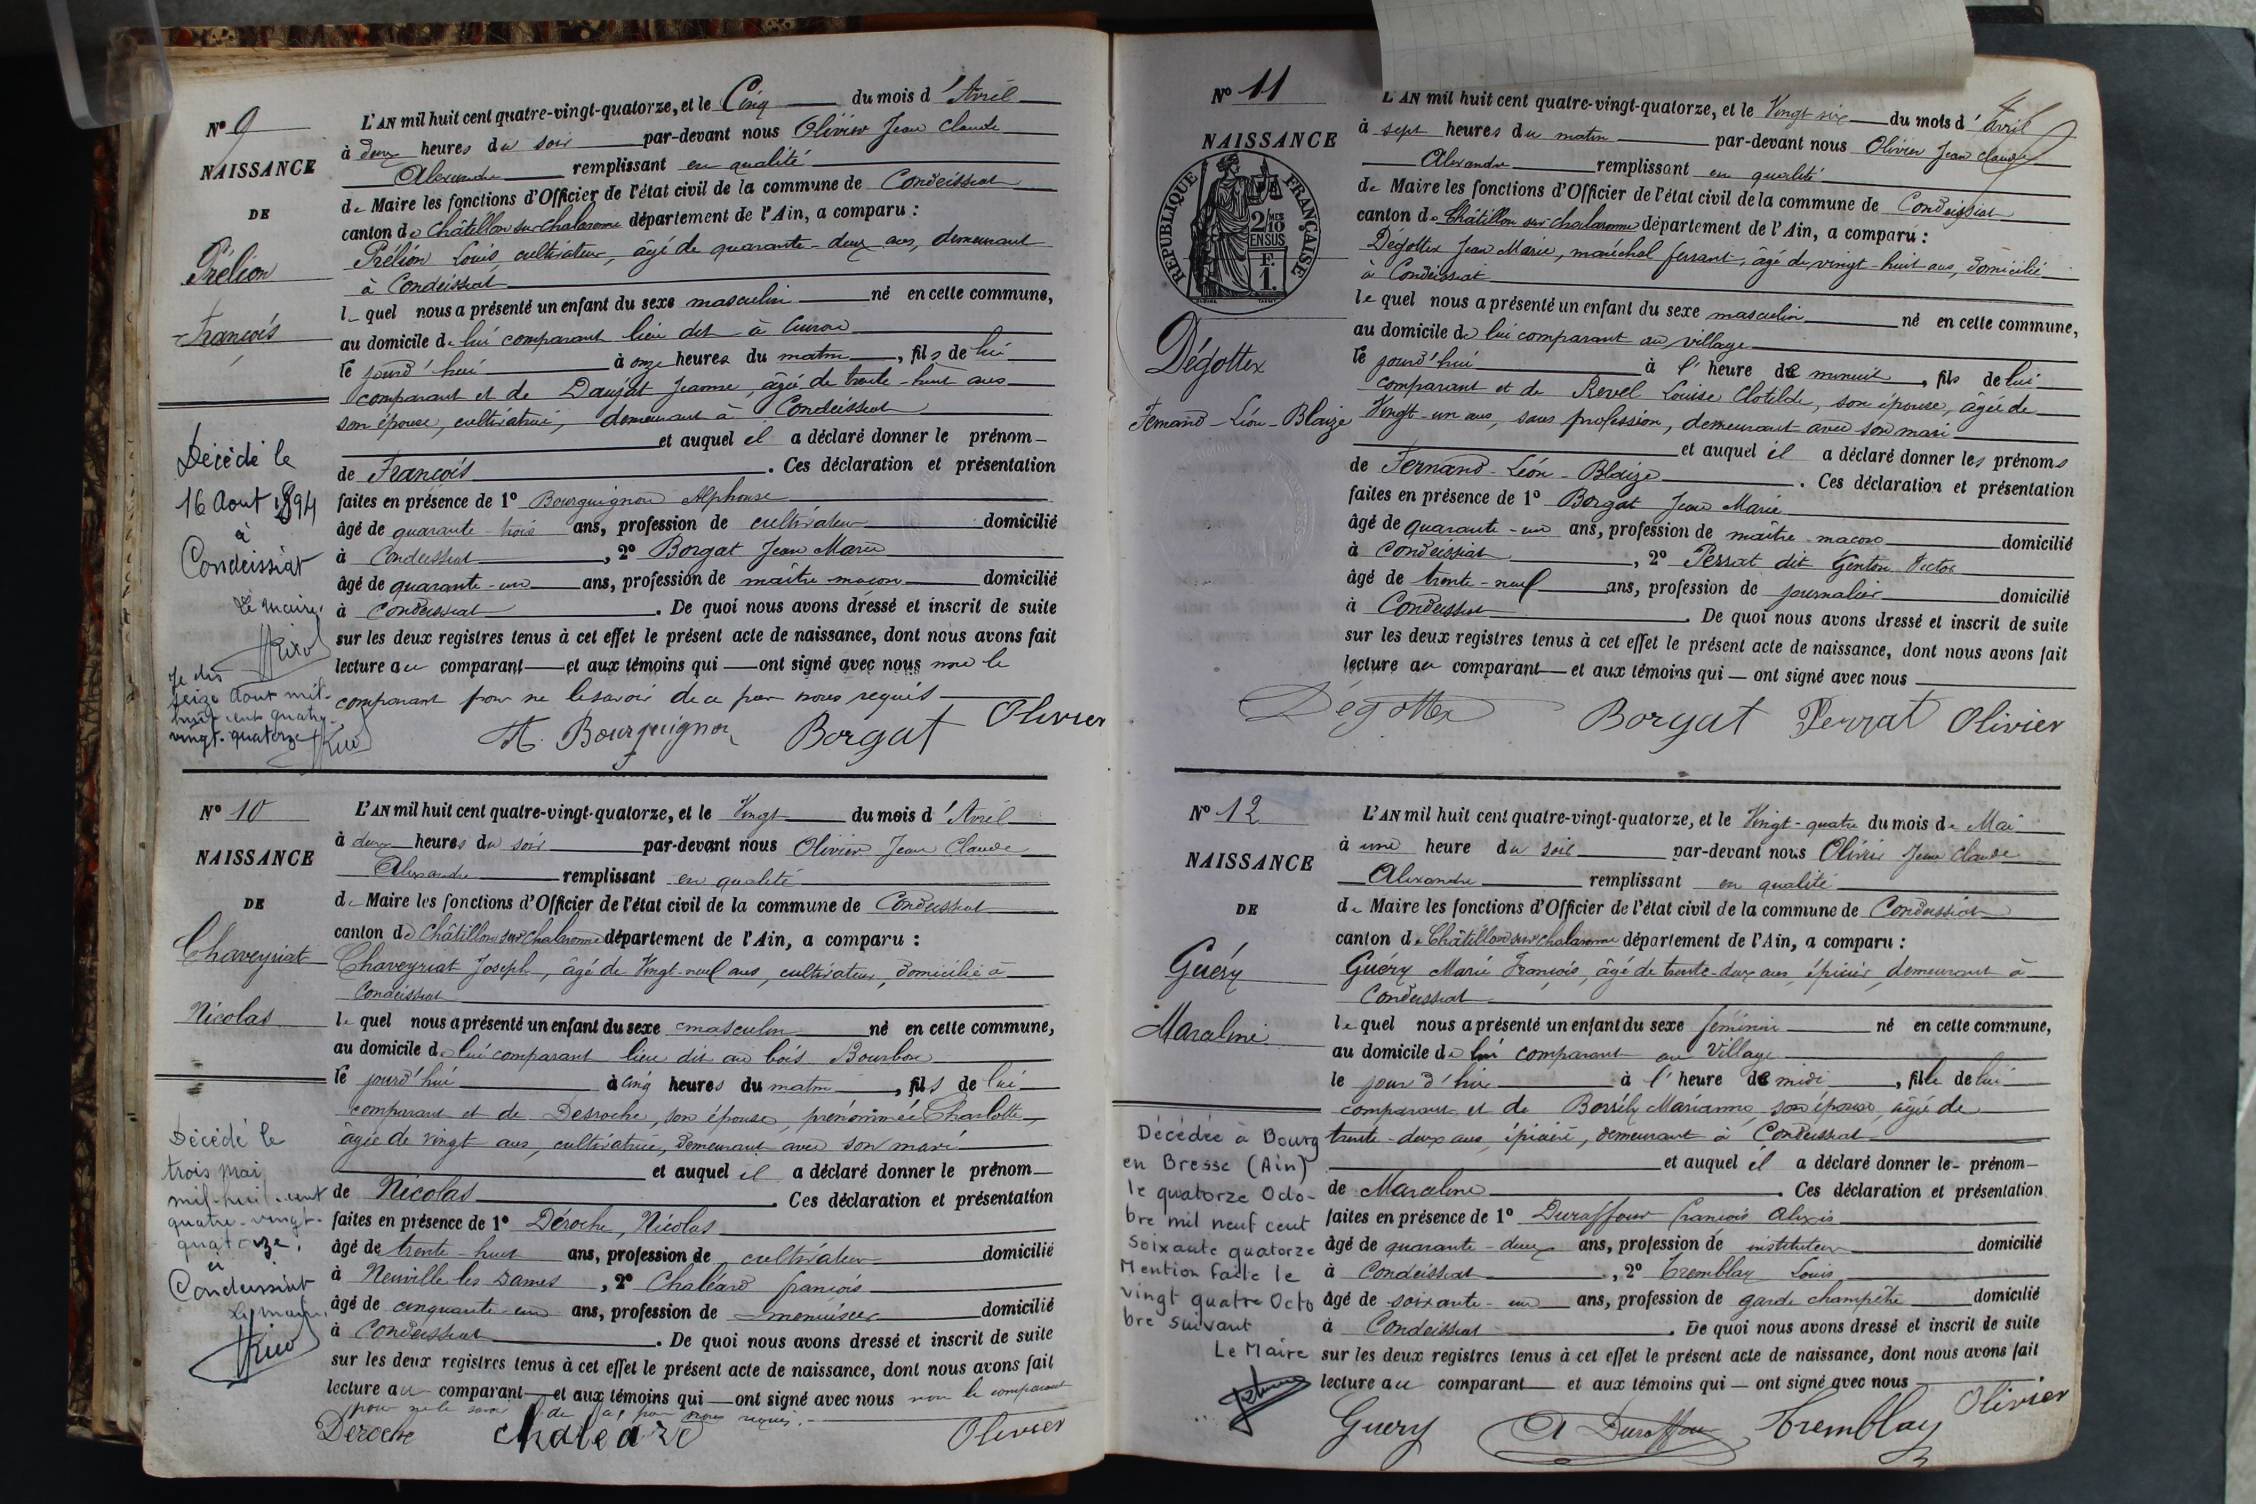 N° 9
NAISSANCE
DE
Prélion
François
Décédé le
16 Aout 1894
à
Condeissiat
Le maire,
Je dis
seize Aout mil-
huit cent quatre-
vingt-quatorze
L'AN mil huit cent quatre-vingt-quatorze, et le Cinq du mois d'Avril
à deux heures du soir par-devant nous Olivier Jean Claude
Alexandre remplissant en qualité
de Maire les fonctions d'Officier de l'état civil de la commune de Condeissiat
canton de Châtillon sur Chalaronne département de l'Ain, a comparu :
Prélion Louis, cultivateur, âgé de quarante-deux ans, demeurant
à Condeissiat
lequel nous a présenté un enfant du sexe masculin né en cette commune,
au domicile de lui comparant lieu dit à
le jourd'hui à onze heures du matin, fils de lui
comparant et de Daujat Jeanne, âgée de trente-huit ans
son épouse, cultivatrice, demeurant à Condeissiat
et auquel il a déclaré donner le prénom
de François. Ces déclaration et présentation
faites en présence de 1° Bourguignon Alphonse
âgé de quarante-trois ans, profession de cultivateur domicilié
à Condeissiat, 2° Borgat Jean Marie
âgé de quarante-un ans, profession de maître maçon domicilié
à Condeissiat. De quoi nous avons dressé et inscrit de suite
sur les deux registres tenus à cet effet le présent acte de naissance, dont nous avons fait
lecture au comparant et aux témoins qui ont signé avec nous non le
comparant pour ne le savoir de ce par nous requis
A. Bourguignon Borgat Olivier
N° 10
NAISSANCE
DE
Chaveyriat
Nicolas
Décédé le
trois mai
mil-huit-cent
quatre-vingt-
quatorze,
à
Condeissiat
Le maire,
L'AN mil huit cent quatre-vingt-quatorze, et le Vingt du mois d'Avril
à deux heures du soir par-devant nous Olivier Jean Claude
Alexandre remplissant en qualité
de Maire les fonctions d'Officier de l'état civil de la commune de Condeissiat
canton de Châtillon sur Chalaronne département de l'Ain, a comparu :
Chaveyriat Joseph, âgé de Vingt-neuf ans, cultivateur, domicilié à
Condeissiat
lequel nous a présenté un enfant du sexe masculin né en cette commune,
au domicile de lui comparant lieu dit au bois Bourbon
le jourd'hui à cinq heures du matin, fils de lui
comparant et de Desroche, son épouse, prénommée Charlotte,
âgée de vingt ans, cultivatrice, demeurant avec son mari
et auquel il a déclaré donner le prénom
de Nicolas. Ces déclaration et présentation
faites en présence de 1° Déroche, Nicolas
âgé de trente-huit ans, profession de cultivateur domicilié
à Neuville les Dames, 2° Chaléard françois
âgé de cinquante-un ans, profession de menuisier domicilié
à Condeissiat. De quoi nous avons dressé et inscrit de suite
sur les deux registres tenus à cet effet le présent acte de naissance, dont nous avons fait
lecture au comparant et aux témoins qui ont signé avec nous non le comparant
pour ne le savoir de ce par nous requis.
Déroche chaleard Olivier
N° 11
NAISSANCE
RÉPUBLIQUE FRANÇAISE
2/10 MES
EN SUS
F.
1.
Dégottex
Fernand-Léon-Blaize
L'AN mil huit cent quatre-vingt-quatorze, et le Vingt-six du mois d'Avril
à sept heures du matin par-devant nous Olivier Jean Claude
Alexandre remplissant en qualité
de Maire les fonctions d'Officier de l'état civil de la commune de Condeissiat
canton de Châtillon sur Chalaronne département de l'Ain, a comparu :
Dégottex Jean Marie, maréchal ferrant, âgé de vingt-huit ans, domicilié
à Condeissiat
lequel nous a présenté un enfant du sexe masculin né en cette commune,
au domicile de lui comparant au village
le jourd'hui à l'heure de minuit, fils de lui
comparant et de Revel Louise Clotilde, son épouse, âgée de
Vingt-un ans, sans profession, demeurant avec son mari
et auquel il a déclaré donner les prénoms
de Fernand-Léon-Blaize. Ces déclaration et présentation
faites en présence de 1° Borgat Jean Marie
âgé de quarante-un ans, profession de maître-maçon domicilié
à Condeissiat, 2° Perrat dit Genton Victor
âgé de trente-neuf ans, profession de journalier domicilié
à Condeissiat. De quoi nous avons dressé et inscrit de suite
sur les deux registres tenus à cet effet le présent acte de naissance, dont nous avons fait
lecture au comparant et aux témoins qui ont signé avec nous
Dégottex Borgat Perrat Olivier
N° 12
NAISSANCE
DE
Guéry
Maraline
Décédée à Bourg
en Bresse (Ain)
le quatorze Octo-
bre mil neuf cent
soixante quatorze
Mention faite le
vingt quatre Octo
bre suivant
Le Maire
L'AN mil huit cent quatre-vingt-quatorze, et le Vingt-quatre du mois de Mai
à une heure du soir par-devant nous Olivier Jean Claude
Alexandre remplissant en qualité
de Maire les fonctions d'Officier de l'état civil de la commune de Condeissiat
canton de Châtillon sur Chalaronne département de l'Ain, a comparu :
Guéry Marie François, âgé de trente-deux ans, épicier, demeurant à
Condeissiat
lequel nous a présenté un enfant du sexe féminin né en cette commune,
au domicile de lui comparant au Village
le jour d'hui à l'heure de midi, fille de lui
comparant et de Marianne, son épouse, âgée de
trente-deux ans, épicière, demeurant à Condeissiat
et auquel il a déclaré donner le prénom
de Maraline. Ces déclaration et présentation
faites en présence de 1° Duraffour François Alexis
âgé de quarante-deux ans, profession de instituteur domicilié
à Condeissiat, 2° Tremblay Louis
âgé de soixante-un ans, profession de garde champêtre domicilié
à Condeissiat. De quoi nous avons dressé et inscrit de suite
sur les deux registres tenus à cet effet le présent acte de naissance, dont nous avons fait
lecture au comparant et aux témoins qui ont signé avec nous
Guery A Duraffour Tremblay Olivier